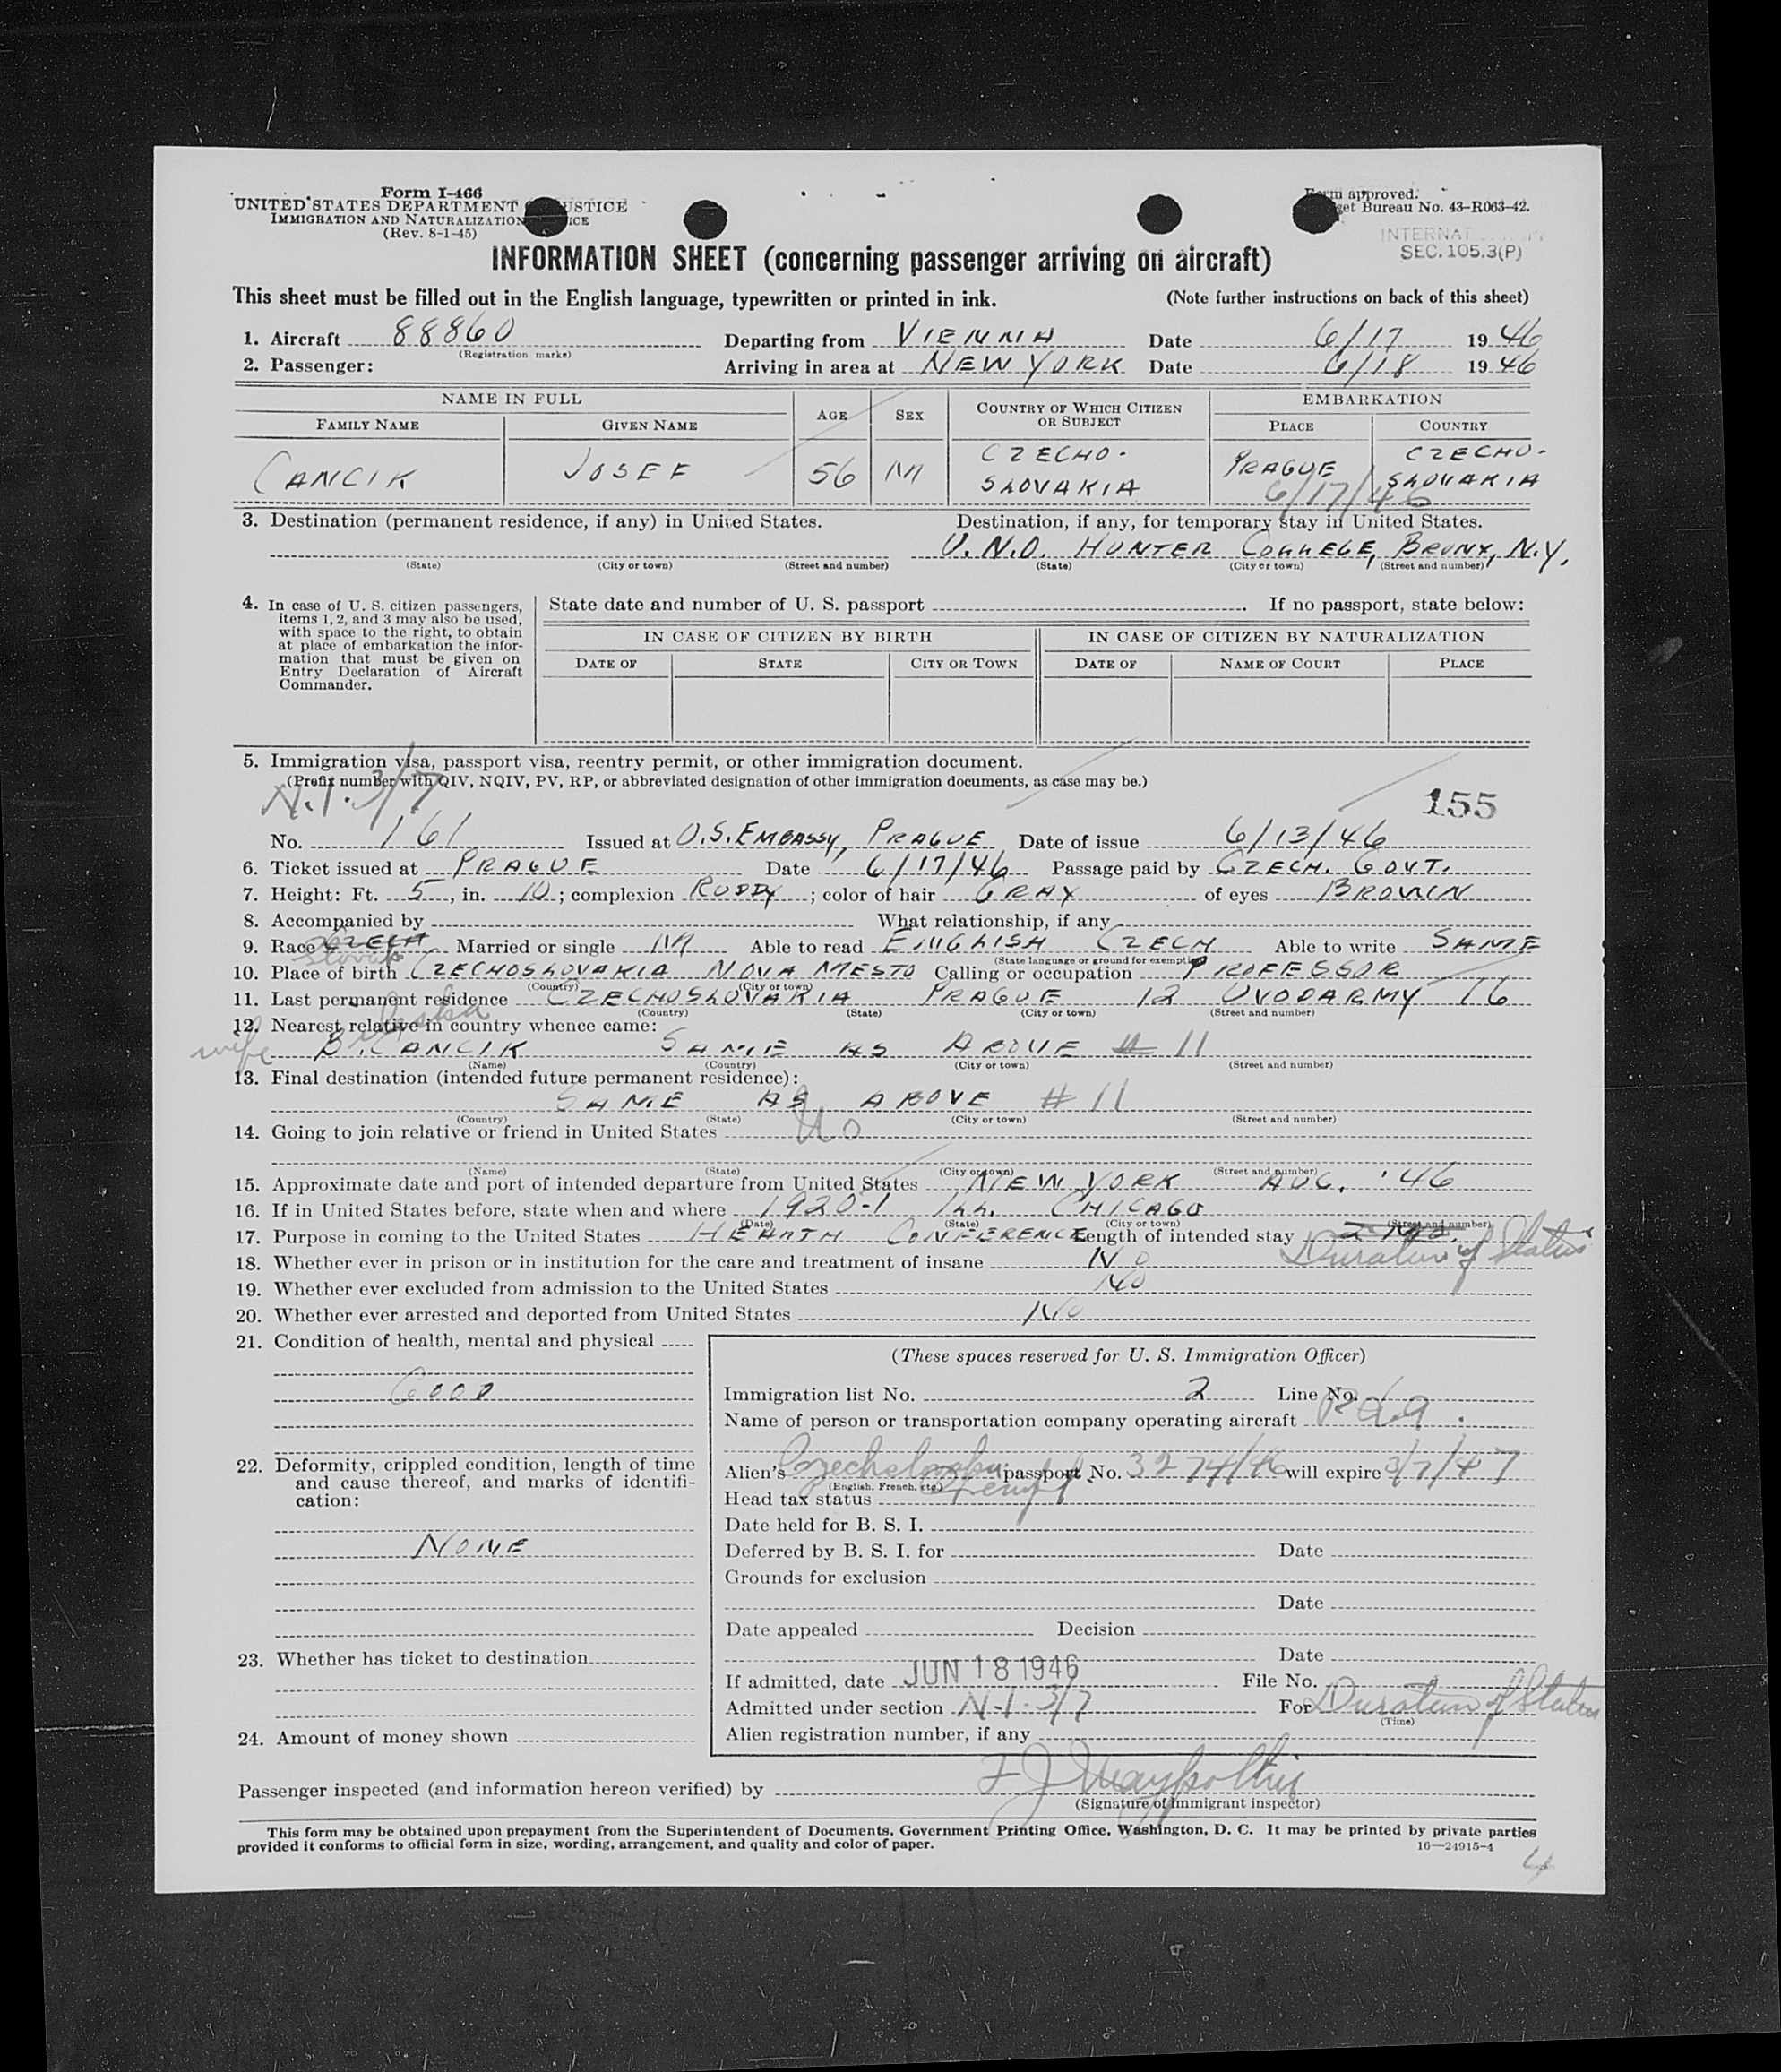 Form I-466
UNITED STATES DEPARTMENT JUSTICE
IMMIGRATION AND NATURALIZATION
(Rev. 8-1-45)
Form approved.
Bureau No. 43-R063-42.
SEC. 105.3(P)
INFORMATION SHEET (concerning passenger arriving on aircraft)
This sheet must be filled out in the English language, typewritten or printed in ink. (Note further instructions on back of this sheet)
1. Aircraft 88860 Departing from VIENNA Date 6/17 1946
(Registration marks)
2. Passenger: Arriving in area at NEW YORK Date 6/18 1946
NAME IN FULL AGE SEX COUNTRY OF WHICH CITIZEN OR SUBJECT EMBARKATION
FAMILY NAME GIVEN NAME PLACE COUNTRY
CANCIK JOSEF 56 M CZECHO-SLOVAKIA PRAGUE CZECHO-SLOVAKIA
6/17/46
3. Destination (permanent residence, if any) in United States. Destination, if any, for temporary stay in United States.
U.N.O. HUNTER COLLEGE, BRONX, N.Y.
(State) (City or town) (Street and number) (State) (City or town) (Street and number)
4. In case of U. S. citizen passengers,
items 1, 2, and 3 may also be used,
with space to the right, to obtain
at place of embarkation the infor-
mation that must be given on
Entry Declaration of Aircraft
Commander.
State date and number of U. S. passport . If no passport, state below:
IN CASE OF CITIZEN BY BIRTH IN CASE OF CITIZEN BY NATURALIZATION
DATE OF STATE CITY OR TOWN DATE OF NAME OF COURT PLACE
5. Immigration visa, passport visa, reentry permit, or other immigration document.
(Prefix number with QIV, NQIV, PV, RP, or abbreviated designation of other immigration documents, as case may be.)
N.I. 3/7
155
No. 161 Issued at U.S. EMBASSY, PRAGUE Date of issue 6/13/46
6. Ticket issued at PRAGUE Date 6/17/46 Passage paid by CZECH. GOVT.
7. Height: Ft. 5, in. 10; complexion RUDDY; color of hair GRAY of eyes BROWN
8. Accompanied by What relationship, if any
9. Race CZECH Slovak Married or single M Able to read ENGLISH CZECH Able to write SAME
(State language or ground for exemption)
10. Place of birth CZECHOSLOVAKIA NOVA MESTO Calling or occupation PROFESSOR
(Country) (City or town)
11. Last permanent residence CZECHOSLOVAKIA PRAGUE 12 UVODARMY 16
(Country) (State) (City or town) (Street and number)
12. Nearest relative in country whence came:
wife B. CANCIK SAME AS ABOVE # 11
(Name) (Country) (City or town) (Street and number)
13. Final destination (intended future permanent residence):
SAME AS ABOVE # 11
(Country) (State) (City or town) (Street and number)
14. Going to join relative or friend in United States No
(Name) (State) (City or town) (Street and number)
15. Approximate date and port of intended departure from United States NEW YORK AUG. '46
16. If in United States before, state when and where 1920-1 ILL. CHICAGO
(Date) (State) (City or town) (Street and number)
17. Purpose in coming to the United States HEALTH CONFERENCE Length of intended stay 2 MO.
Duration of Status
18. Whether ever in prison or in institution for the care and treatment of insane NO
19. Whether ever excluded from admission to the United States NO
20. Whether ever arrested and deported from United States NO
21. Condition of health, mental and physical
GOOD
22. Deformity, crippled condition, length of time
and cause thereof, and marks of identifi-
cation:
NONE
23. Whether has ticket to destination
24. Amount of money shown
(These spaces reserved for U. S. Immigration Officer)
Immigration list No. 2 Line No.
Name of person or transportation company operating aircraft
Alien's passport No. 3274/46 will expire 3/7/47
(English, French, etc.)
Head tax status
Date held for B. S. I.
Deferred by B. S. I. for Date
Grounds for exclusion
Date
Date appealed Decision
Date
If admitted, date JUN 18 1946 File No.
Admitted under section N-I- 3/7 For Duration of Status
(Time)
Alien registration number, if any
Passenger inspected (and information hereon verified) by
(Signature of Immigrant inspector)
This form may be obtained upon prepayment from the Superintendent of Documents, Government Printing Office, Washington, D. C. It may be printed by private parties
provided it conforms to official form in size, wording, arrangement, and quality and color of paper. 16—24915-4
4